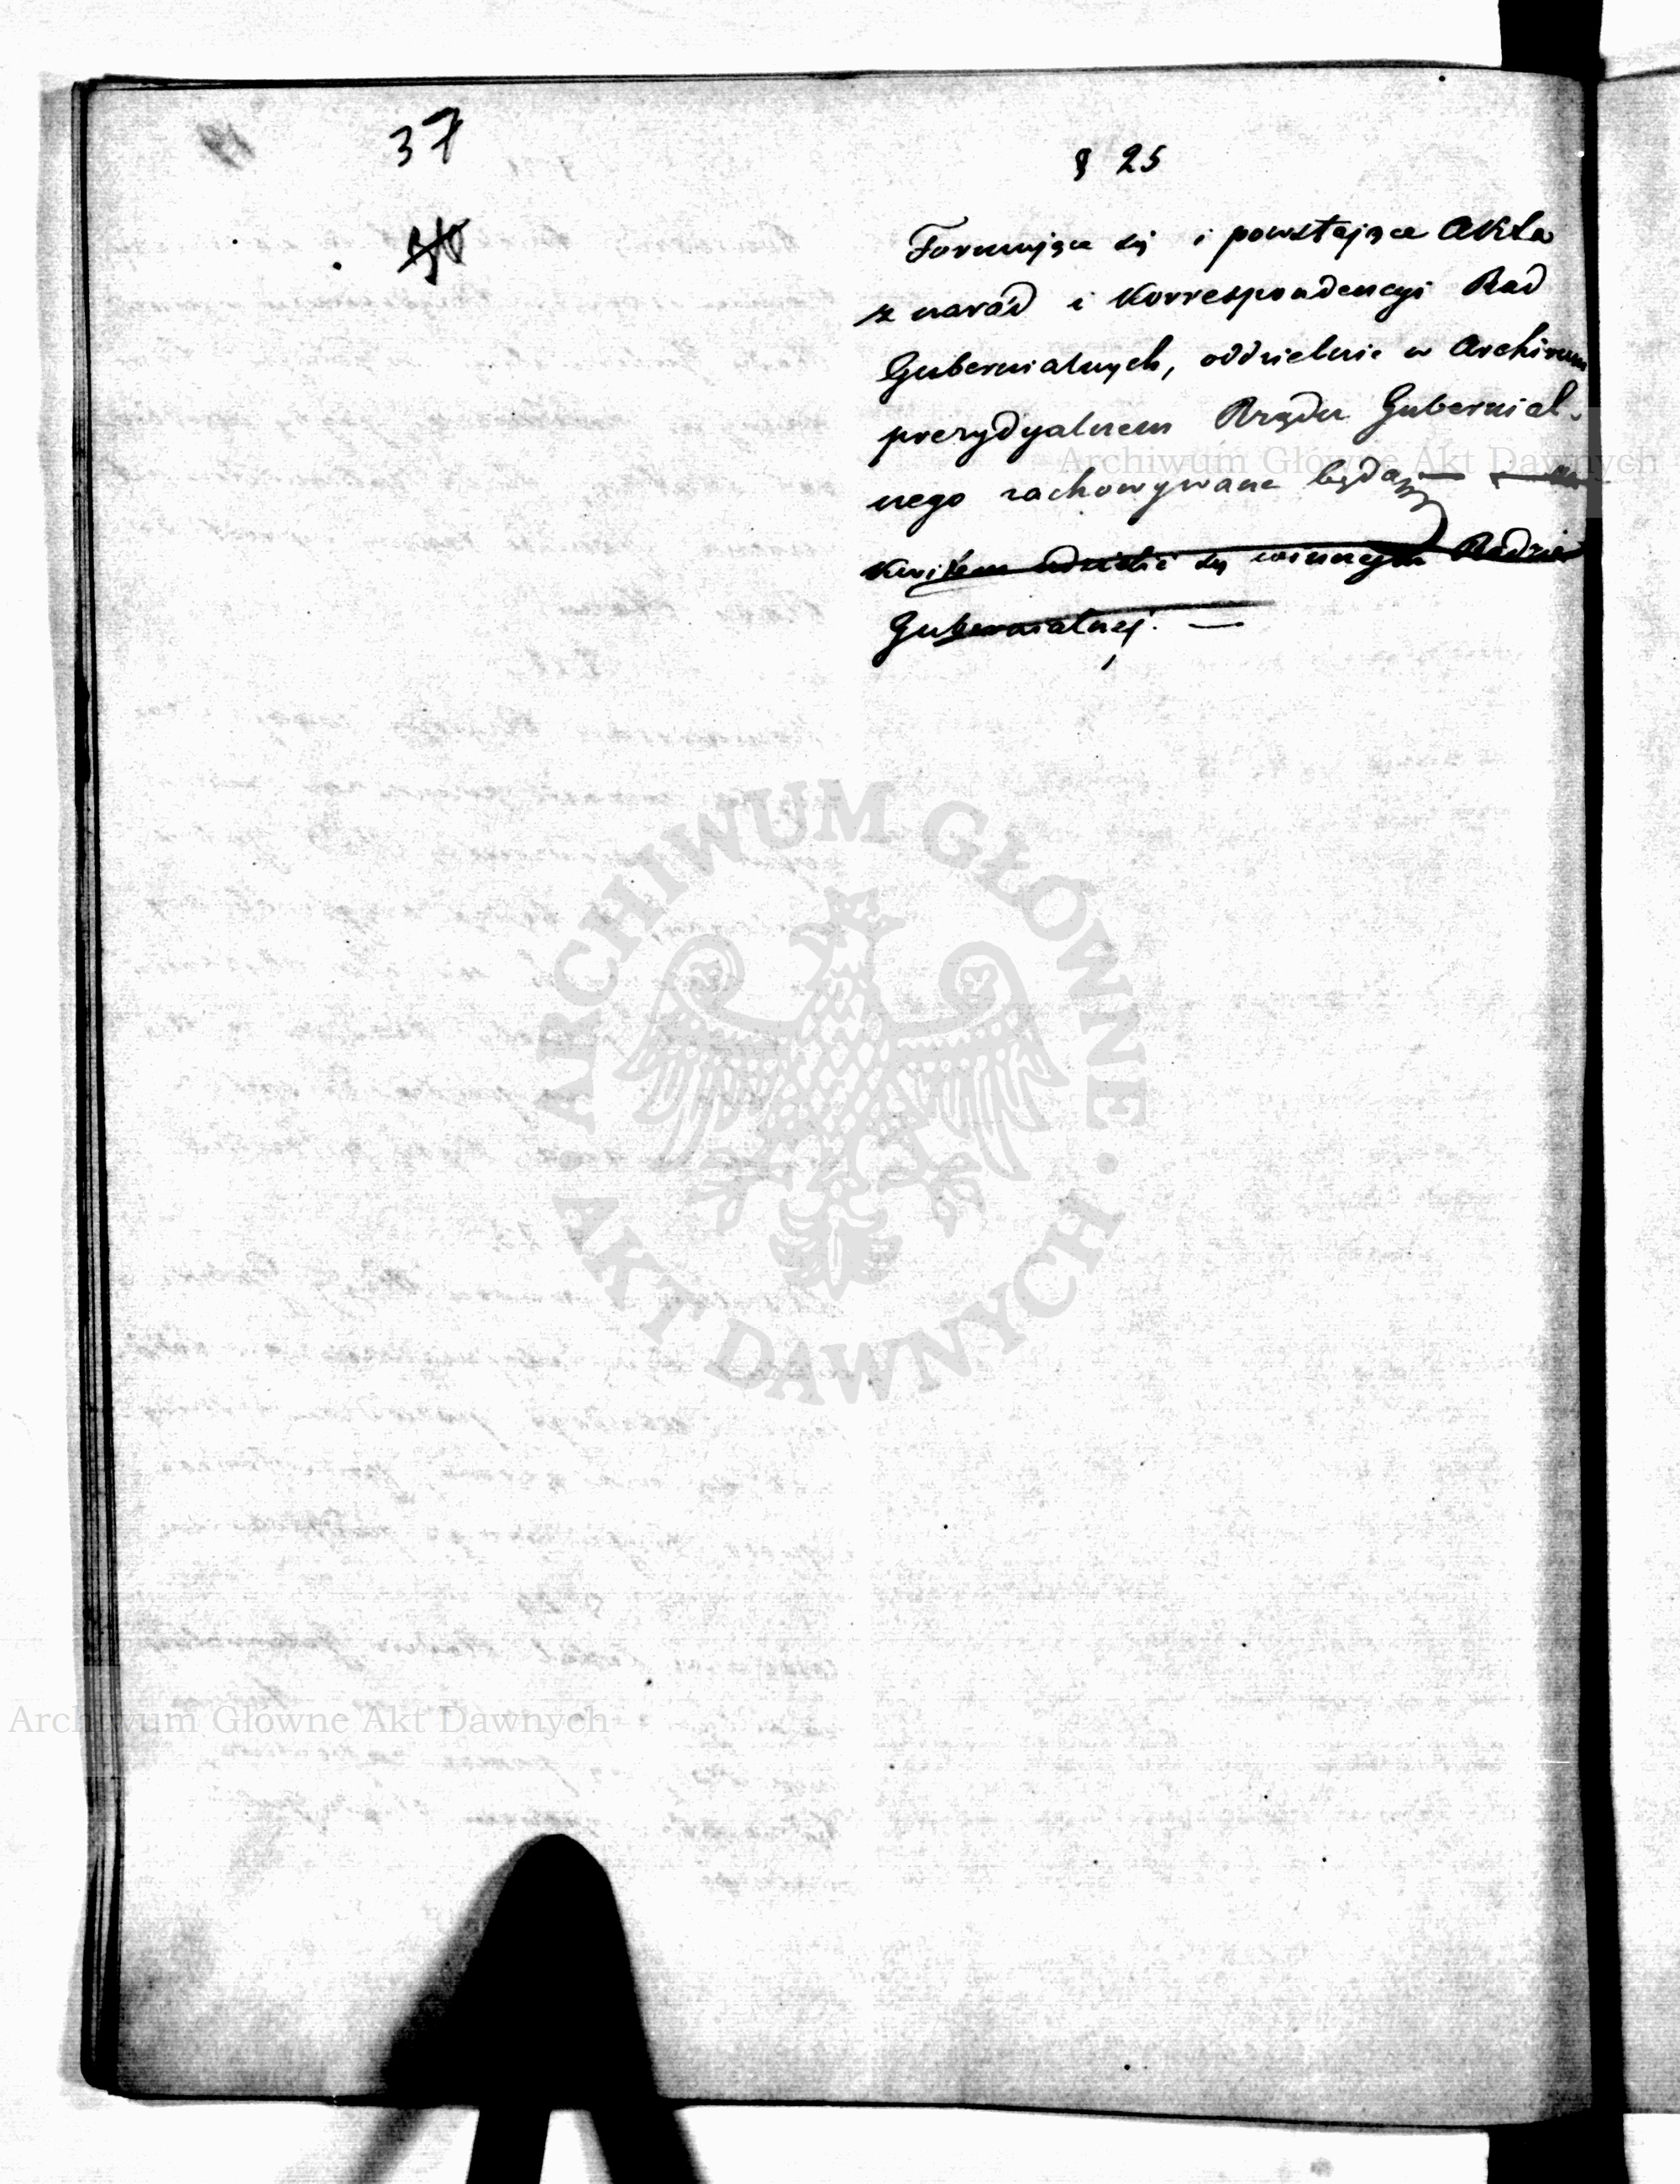 37
§ 25
Formujące się i powstające Akta
z narad i Korrespondencyi Rad
Gubernialnych, oddzielnie w Archiwum
prezydyalnem Rządu Gubernial-
nego zachowywane będą
udzielić się winnym Radzie
Gubernialnej. —
Archiwum Główne Akt Dawnych
ARCHIWUM GŁÓWNE · AKT DAWNYCH ·
Archiwum Główne Akt Dawnych